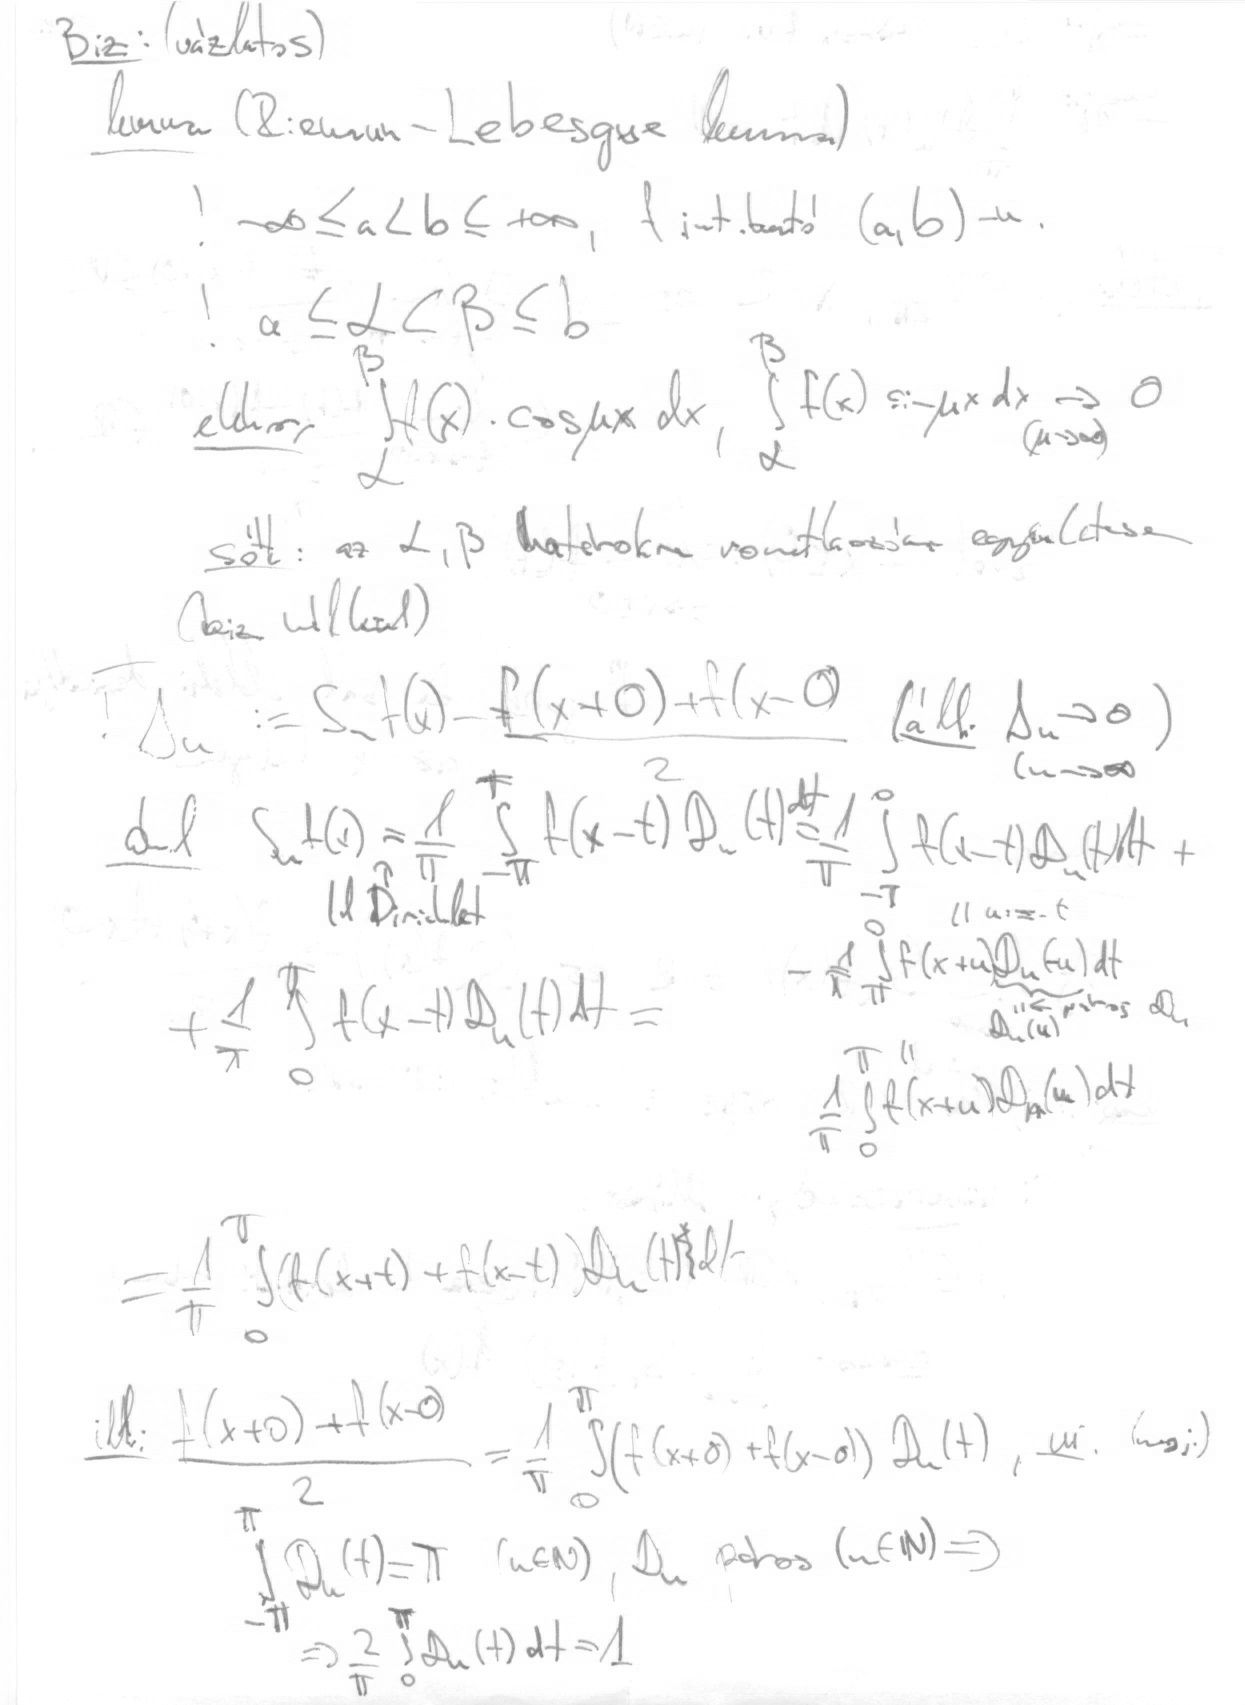 Biz: (vázlatos)
lemma (Riemann-Lebesgue lemma)
! -∞ ≤ a < b ≤ +∞, f int.ható (a,b)-n.
! a ≤ α < β ≤ b
ekkor ∫_α^β f(x)·cosμx dx, ∫_α^β f(x) sinμx dx → 0 (μ→∞)
sőt: az α, β határokra vonatkozóan egyenletesen
(biz nélkül)
! Δ_n := S_n f(x) - (f(x+0)+f(x-0))/2 (áll. Δ_n → 0 (n→∞)
S_n f(x) = 1/π ∫_{-π}^{π} f(x-t) D_n(t) dt = 1/π ∫_{-π}^{0} f(x-t) D_n(t) dt +
ld Dirichlet
|| u:=-t
-1/π ∫_π^0 f(x+u) D_n(-u) dt
|| ← páros D_n
D_n(u)
+ 1/π ∫_0^π f(x-t) D_n(t) dt =
||
1/π ∫_0^π f(x+u) D_n(u) dt
= 1/π ∫_0^π (f(x+t) + f(x-t)) D_n(t) dt
ill: (f(x+0)+f(x-0))/2 = 1/π ∫_0^π (f(x+0)+f(x-0)) D_n(t), mi. (megj.)
∫_{-π}^{π} D_n(t) = π (n∈ℕ), D_n páros (n∈ℕ) ⇒
⇒ 2/π ∫_0^π D_n(t) dt = 1